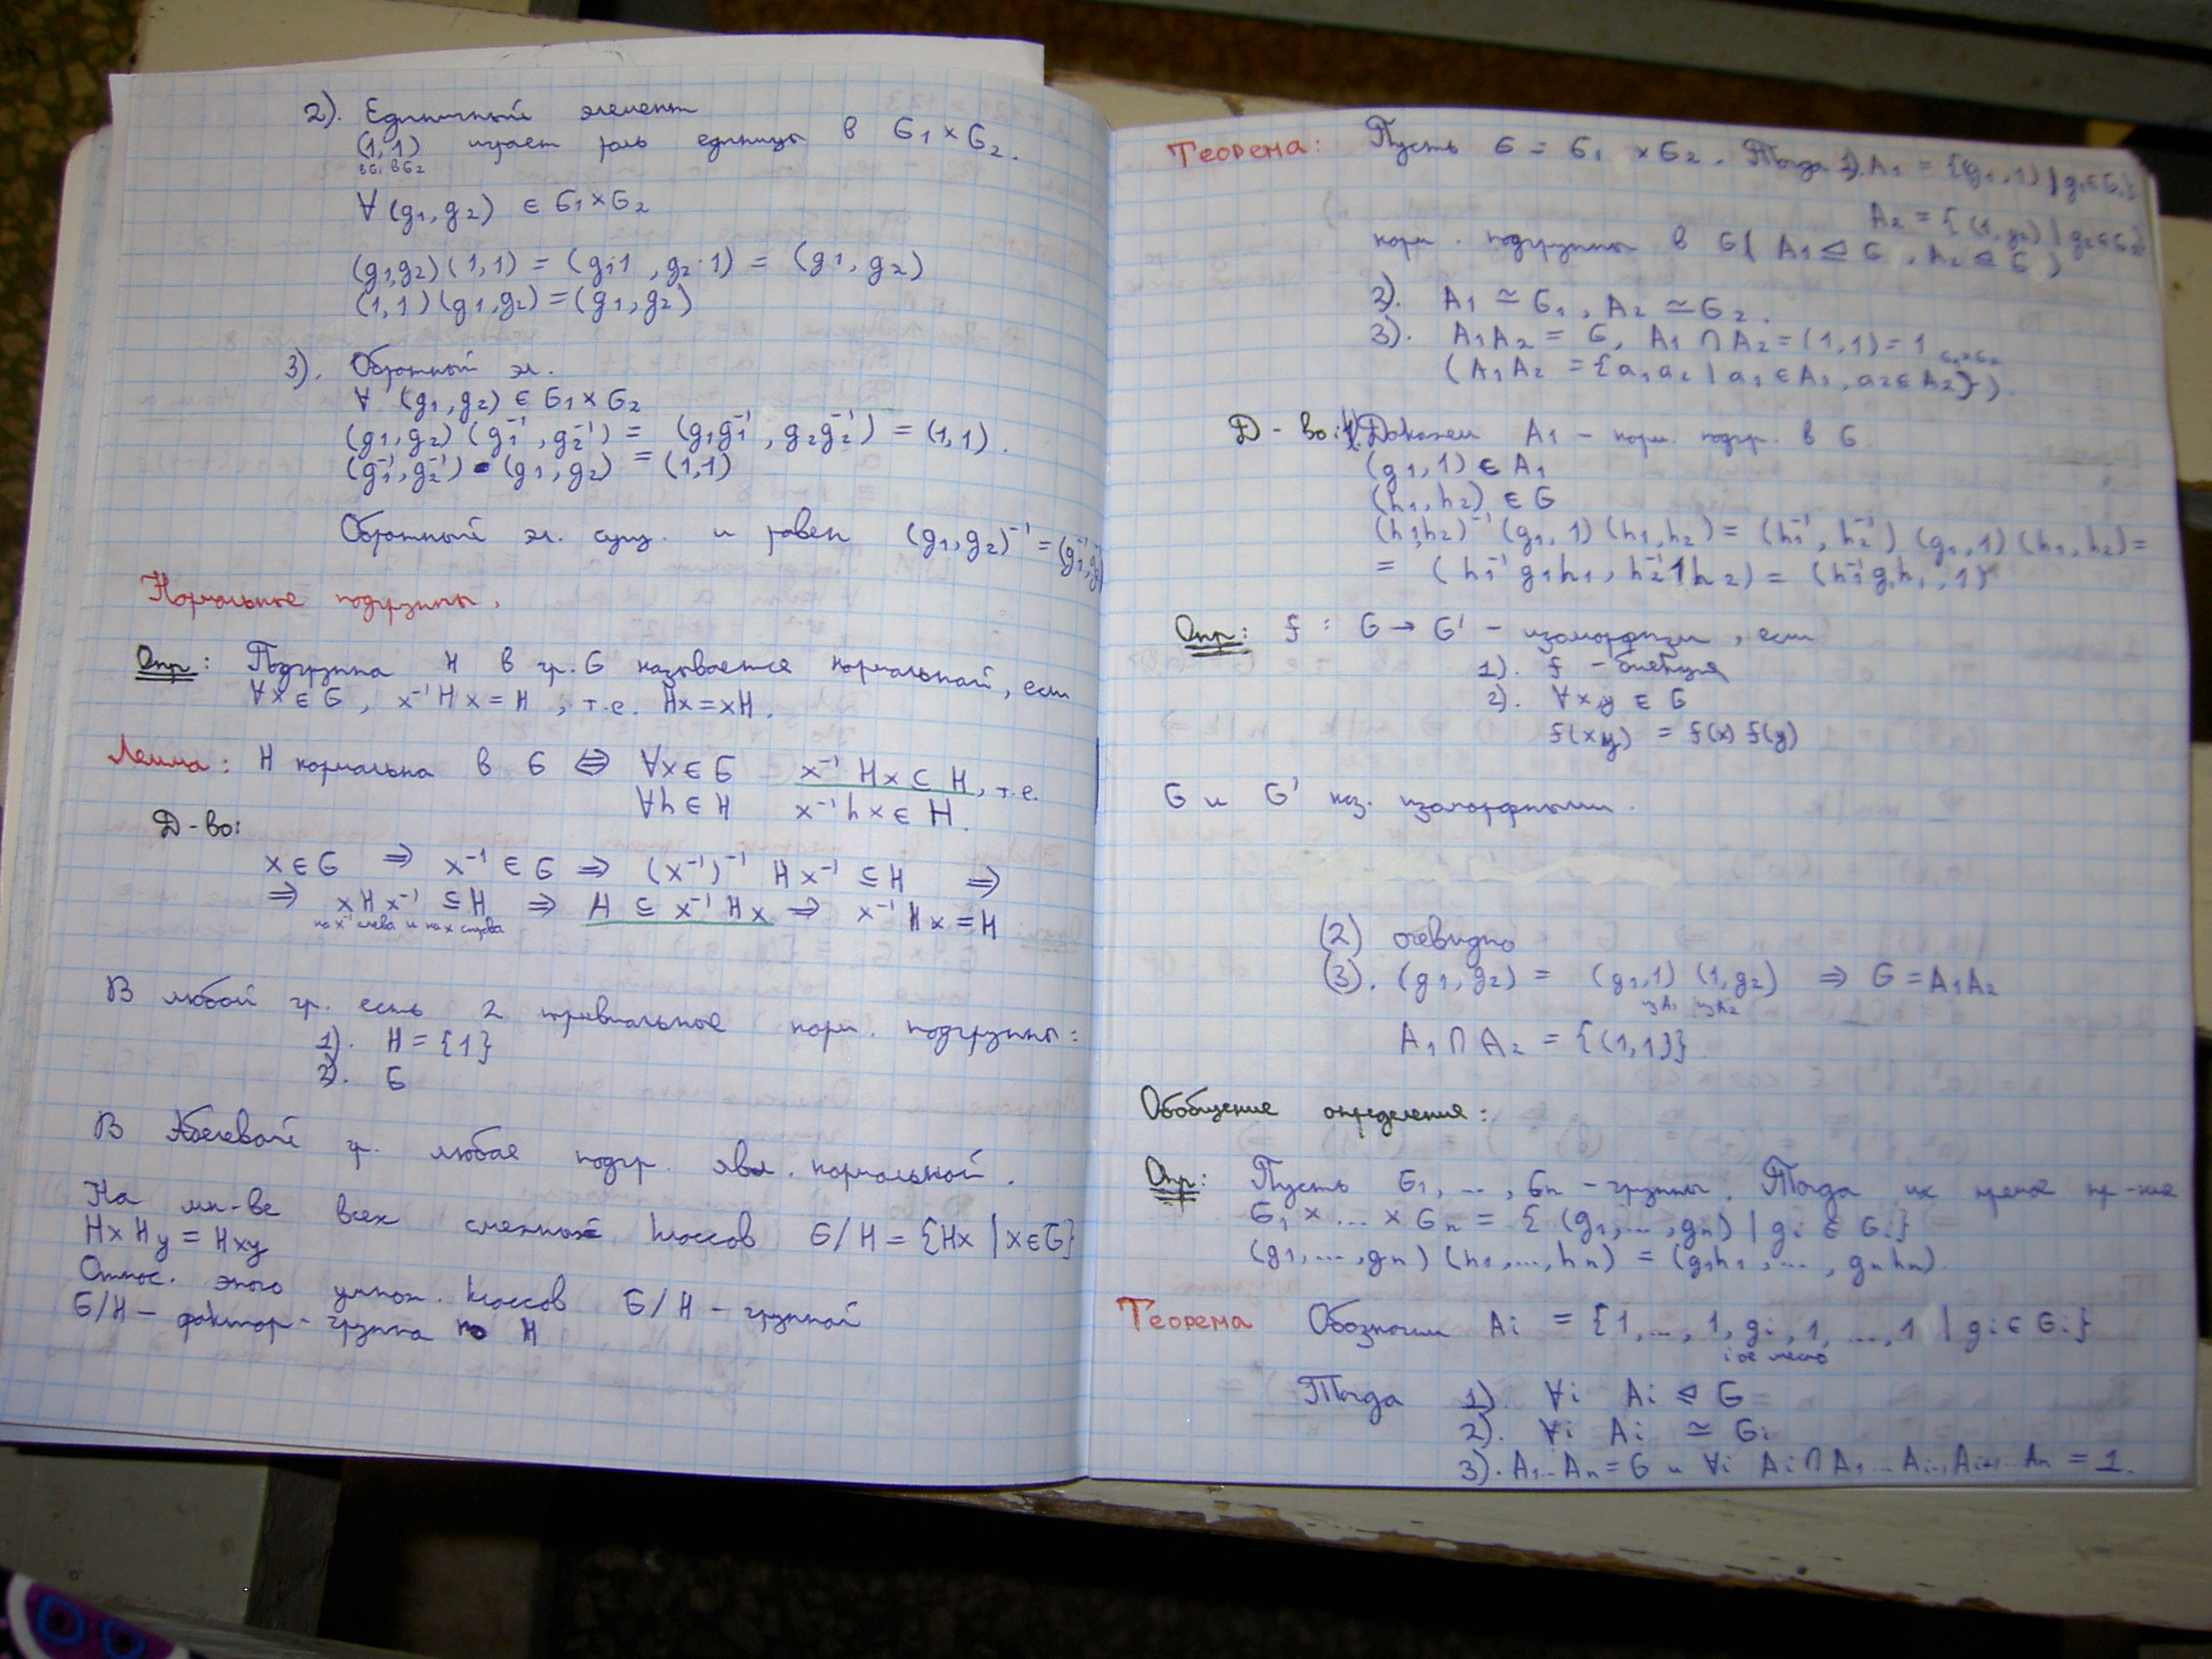 2). Единичный элемент
(1,1) играет роль единицы в G₁×G₂.
в G₁ в G₂
∀(g₁,g₂) ∈ G₁×G₂
(g₁,g₂)(1,1) = (g₁·1, g₂·1) = (g₁, g₂)
(1,1)(g₁,g₂)=(g₁,g₂)
3). Обратный эл.
∀ (g₁,g₂) ∈ G₁×G₂
(g₁,g₂)(g₁⁻¹,g₂⁻¹) = (g₁g₁⁻¹, g₂g₂⁻¹) = (1,1).
(g₁⁻¹,g₂⁻¹)·(g₁,g₂) = (1,1)
Обратный эл. сущ. и равен (g₁,g₂)⁻¹=(g₁⁻¹,g₂⁻¹)
Нормальные подгруппы.
Опр: Подгруппа H в гр. G называется нормальной, если
∀x∈G, x⁻¹Hx=H, т.е. Hx=xH.
Лемма: H нормальна в G ⇔ ∀x∈G x⁻¹Hx⊆H, т.е.
∀h∈H x⁻¹hx∈H.
Д-во:
x∈G ⇒ x⁻¹∈G ⇒ (x⁻¹)⁻¹Hx⁻¹⊆H ⇒
⇒ xHx⁻¹⊆H ⇒ H⊆x⁻¹Hx ⇒ x⁻¹Hx=H
на x⁻¹ слева и на x справа
В любой гр. есть 2 тривиальные норм. подгруппы:
1). H={1}
2). G
В Абелевой гр. любая подгр. явл. нормальной.
На мн-ве всех смежных классов G/H={Hx|x∈G}
HxHy=Hxy
Относ. этого умнож. классов G/H – группой
G/H – фактор-группа по H
Теорема: Пусть G=G₁×G₂. Тогда 1). A₁={(g₁,1)|g₁∈G₁}
A₂={(1,g₂)|g₂∈G₂}
норм. подгруппы в G (A₁⊴G, A₂⊴G)
2). A₁≃G₁, A₂≃G₂.
3). A₁A₂=G, A₁∩A₂=(1,1)=1 G₁×G₂
(A₁A₂={a₁a₂|a₁∈A₁,a₂∈A₂}).
Д-во: 1). Докажем A₁ – норм. подгр. в G.
(g₁,1)∈A₁
(h₁,h₂)∈G
(h₁,h₂)⁻¹(g₁,1)(h₁,h₂)=(h₁⁻¹,h₂⁻¹)(g₁,1)(h₁,h₂)=
=(h₁⁻¹g₁h₁,h₂⁻¹1h₂)=(h₁⁻¹g₁h₁,1)
Опр: f: G→G' – изоморфизм, если
1). f – биекция
2). ∀x,y∈G
f(xy)=f(x)f(y)
G и G' наз. изоморфными.
(2) очевидно
(3). (g₁,g₂)=(g₁,1)(1,g₂) ⇒ G=A₁A₂
из A₁ из A₂
A₁∩A₂={(1,1)}
Обобщение определения:
Опр: Пусть G₁,...,Gn – группы. Тогда их прямое пр-ние
G₁×...×Gn={(g₁,...,gn)|gi∈Gi}
(g₁,...,gn)(h₁,...,hn)=(g₁h₁,...,gnhn).
Теорема Обозначим Ai={1,...,1,gi,1,...,1|gi∈Gi}
i ое место
Тогда 1). ∀i Ai⊴G
2). ∀i Ai≃Gi
3). A₁...An=G и ∀i Ai∩A₁...Ai-1Ai+1...An=1.